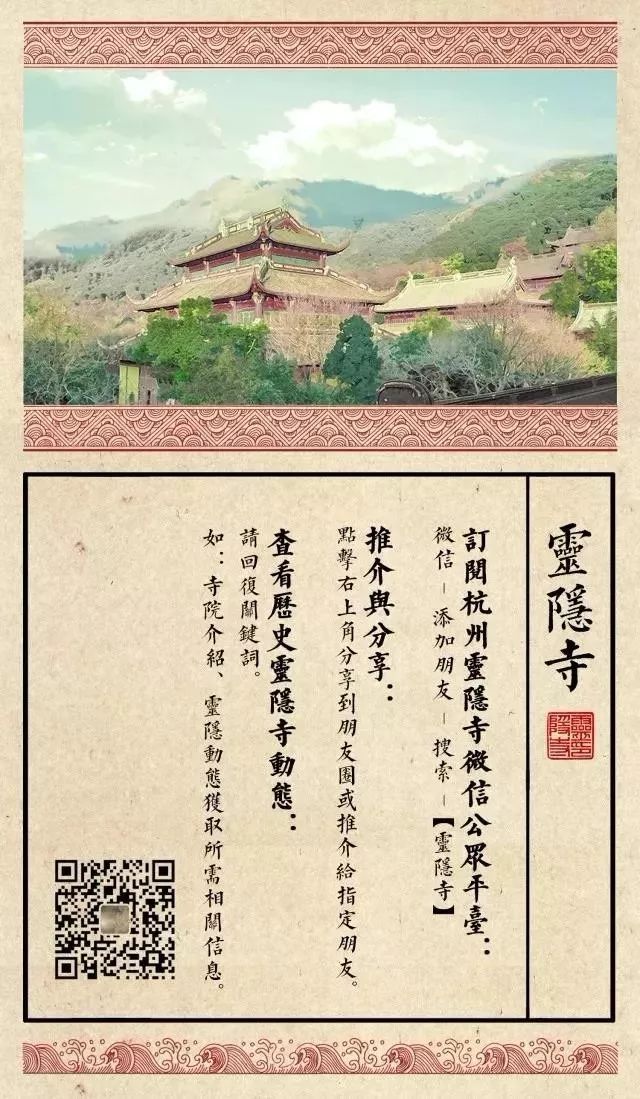 靈隱寺
靈隱寺
訂閱杭州靈隱寺微信公眾平臺：
微信－添加朋友－搜索－【靈隱寺】
推介與分享：
點擊右上角分享到朋友圈或推介給指定朋友。
查看歷史靈隱寺動態：
請回復關鍵詞。
如：寺院介紹、靈隱動態獲取所需相關信息。